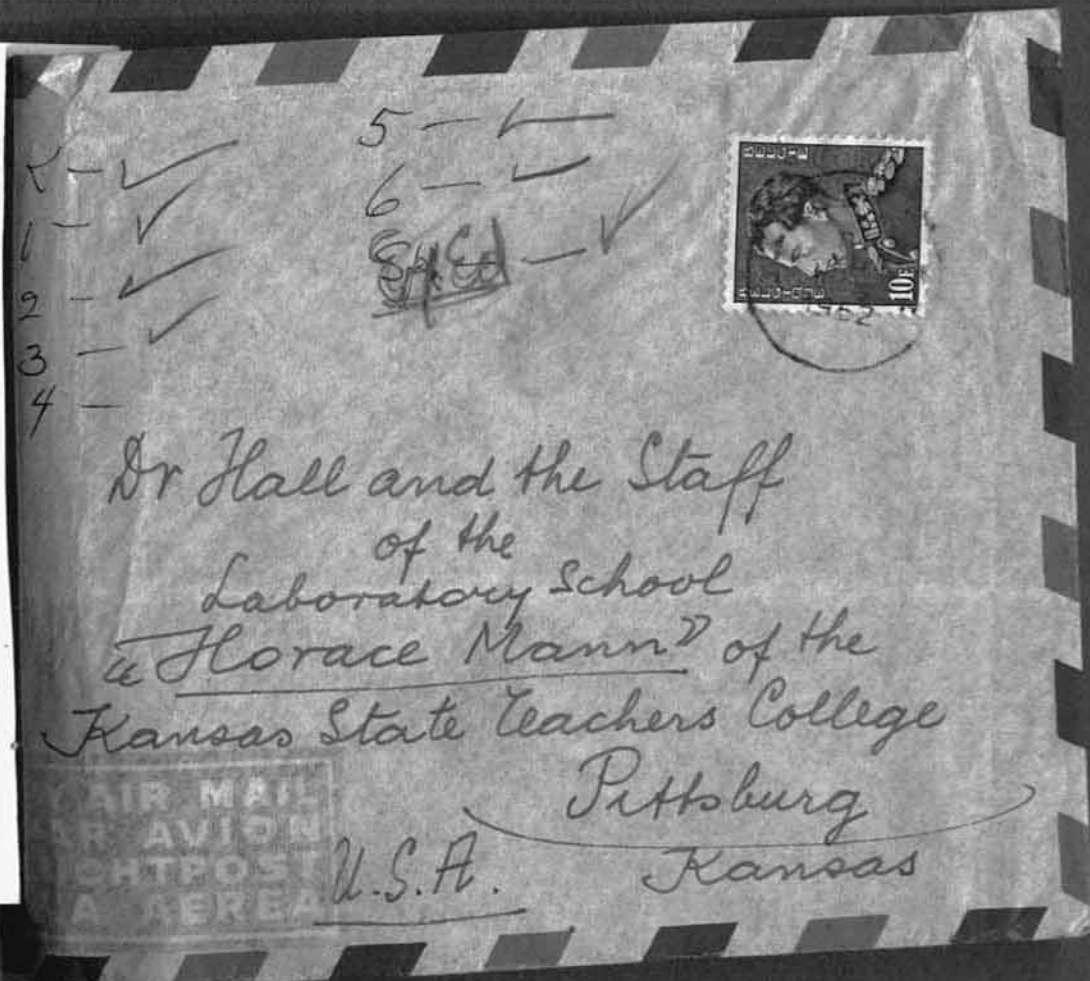 K - ✓
1 - ✓
2 - ✓
3 - ✓
4 -
5 - ✓
6 - ✓
Sp Ed - ✓
BELGIE
BELGIQUE
10F
1952
Dr Hall and the Staff
of the
Laboratory School
"Horace Mann" of the
Kansas State Teachers College
Pittsburg
Kansas
U.S.A.
Y AIR MAIL
AR AVION
GHTPOST
A AEREA